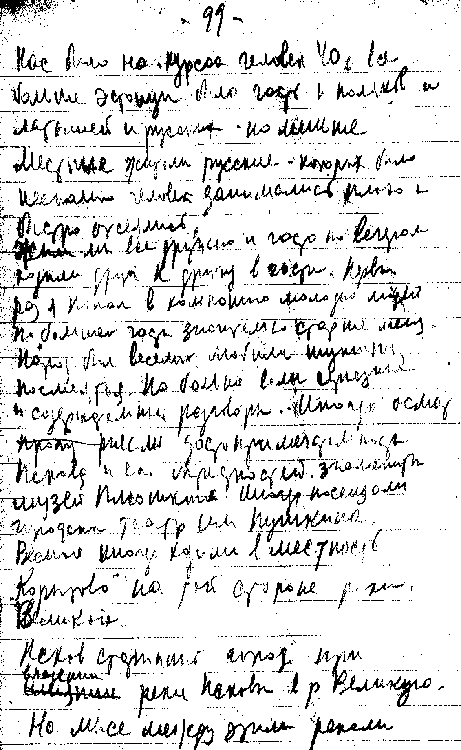 - 99 -
Нас было на курсах человек 40,
больше эстонцы было часть и поляков и
латышей и русских - по меньше
Местные жители русские - которых было
несколько человек занимались плохо и
быстро отсеялись
жили мы все дружно и часто по вечерам
ходили друг к другу в гости. Первый
раз я попал в компанию молодых людей
по большей части значительно старше меня.
Народ был веселый любили шутить,
посмеяться, но больше вели серьезные
и содержательные разговоры. Иногда
ходили достопримечательности
Пскова и его окрестностей. знаменитый
музей Плюшкина, иногда посещали
городской театр им Пушкина.
Весной иногда ходили в местность
Корытово на той стороне реки
Великой.
Псков старинный город при
впадении реки Псковы в р Великую.
На мысе между этими реками